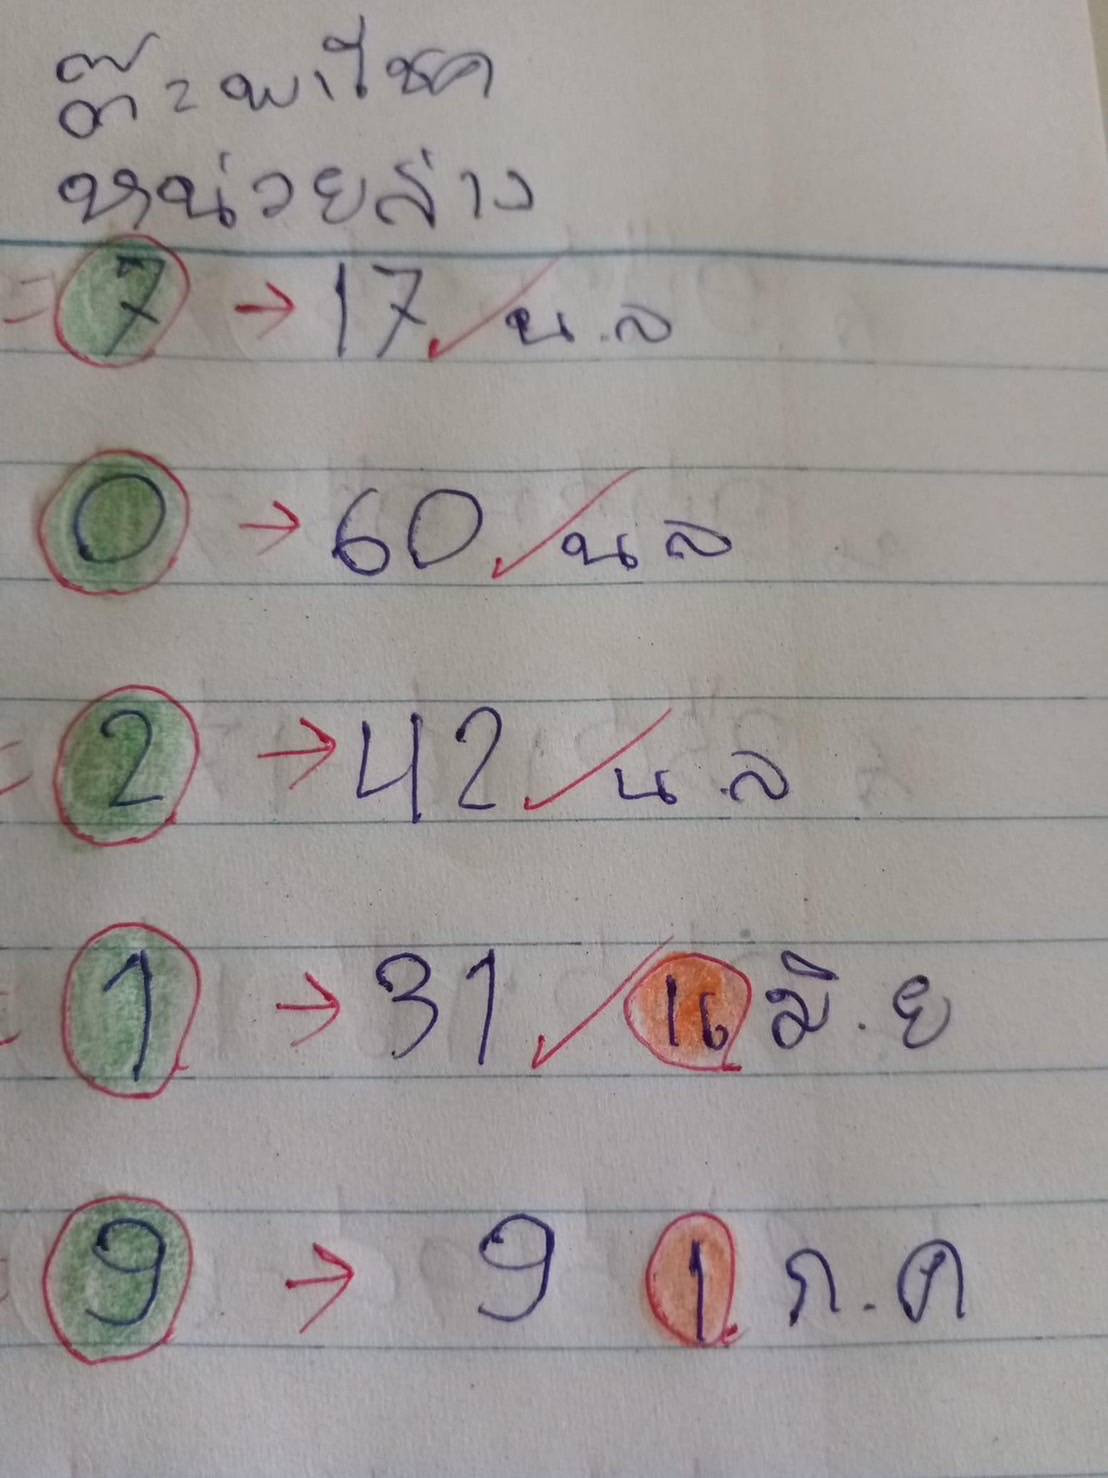 ต๊ะพาโชค
หน่วยล่าง
= 7 → 17 ✓ น.ล
0 → 60 ✓ น ล
= 2 → 42 ✓ น.ล
= 1 → 31 ✓ 16 มิ.ย
= 9 → 9 1 ก.ค